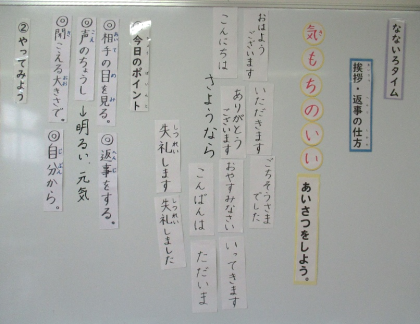 なないろタイム
挨拶・返事の仕方
気もちのいい
あいさつをしよう。
ごちそうさまでした
いただきます
おやすみなさい
いってきます
おはようございます
ありがとうございます
こんにちは
さようなら
こんばんは
ただいま
失礼します
失礼しました
今日のポイント
◎相手の目を見る。
◎返事をする。
◎声のちょうし→明るい、元気
◎聞こえる大きさで。
◎自分から。
②やってみよう